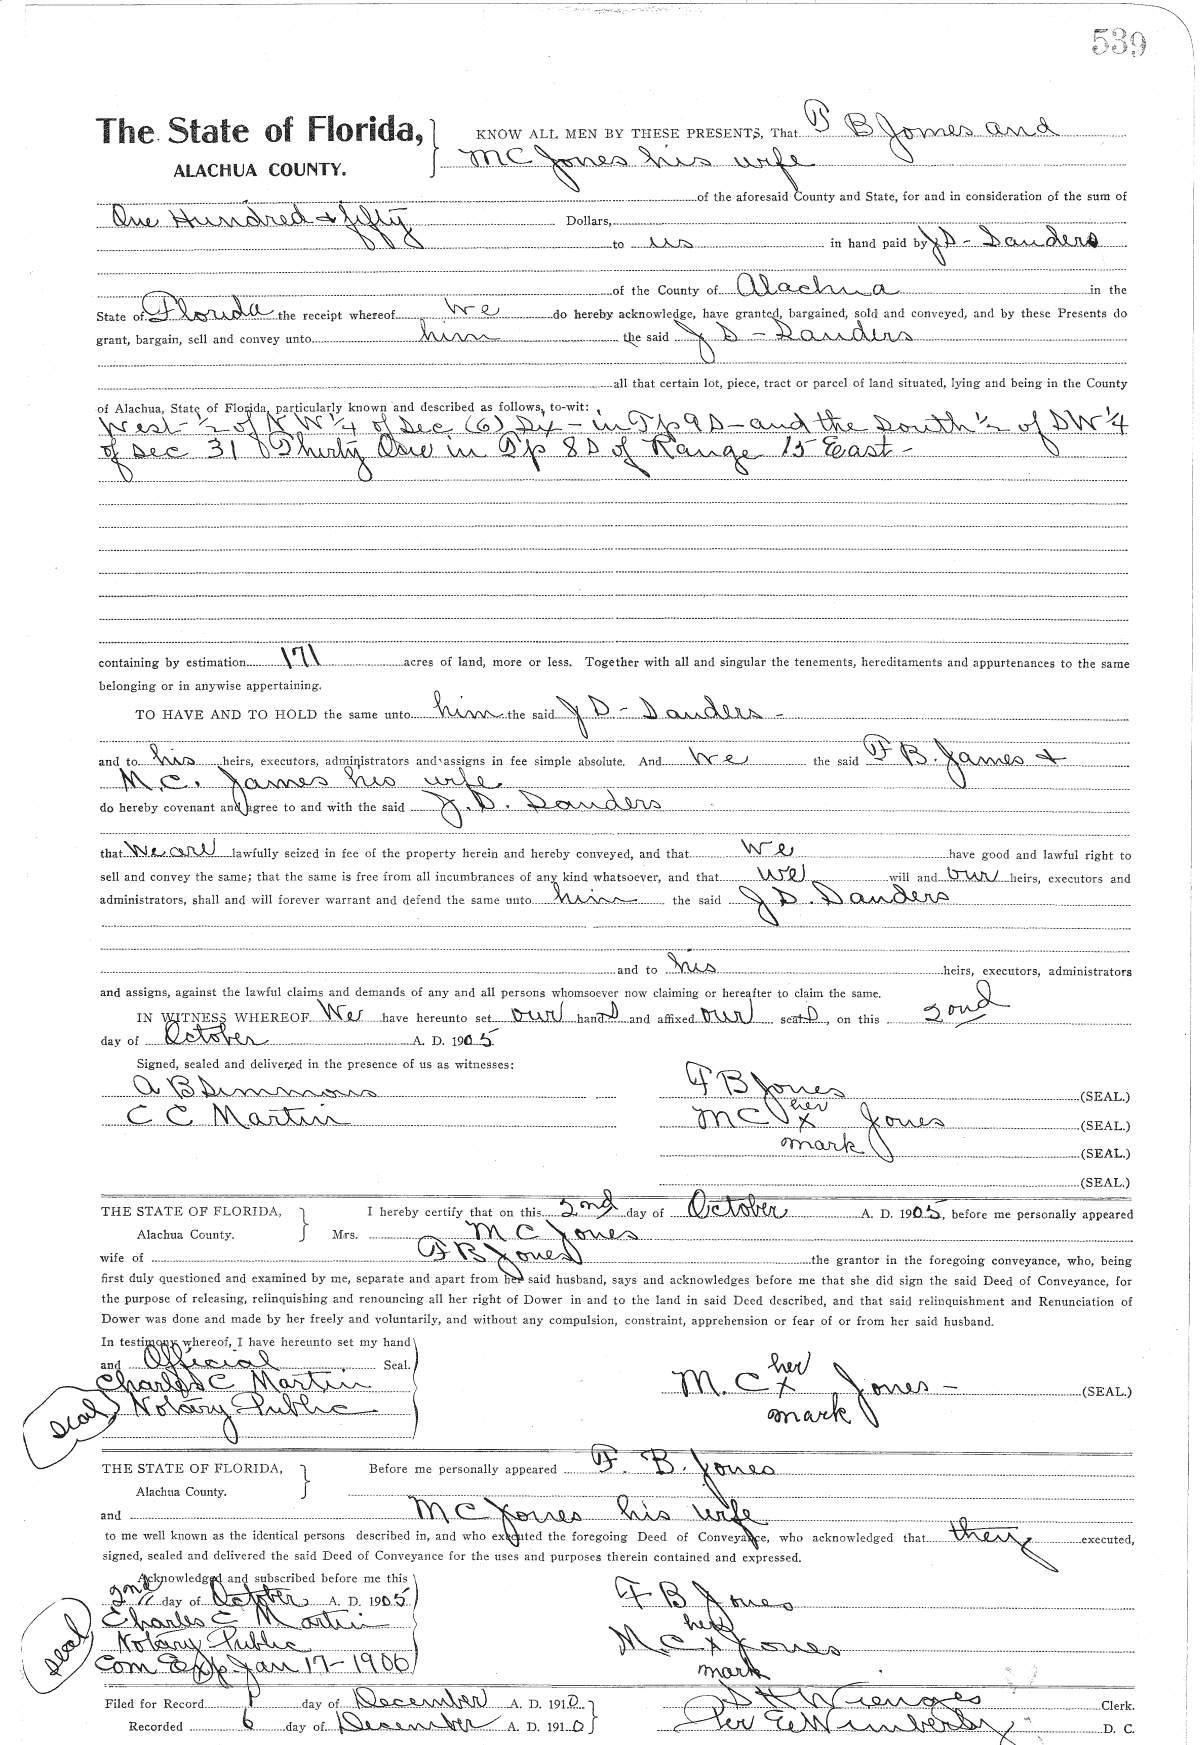 539
The State of Florida,
ALACHUA COUNTY.
KNOW ALL MEN BY THESE PRESENTS, That F B Jones and
M C Jones his wife
of the aforesaid County and State, for and in consideration of the sum of
One Hundred & fifty Dollars,
to us in hand paid by J D - Sanders
of the County of Alachua in the
State of Florida the receipt whereof We do hereby acknowledge, have granted, bargained, sold and conveyed, and by these Presents do
grant, bargain, sell and convey unto him the said J D - Sanders
all that certain lot, piece, tract or parcel of land situated, lying and being in the County
of Alachua, State of Florida, particularly known and described as follows, to-wit:
West - 1/2 of N W 1/4 of Sec (6) Six - in Tp 9 S - and the South 1/2 of SW 1/4
of Sec 31 Thirty One in Tp 8 S of Range 15 East -
containing by estimation 171 acres of land, more or less. Together with all and singular the tenements, hereditaments and appurtenances to the same
belonging or in anywise appertaining.
TO HAVE AND TO HOLD the same unto him the said J D - Sanders -
and to his heirs, executors, administrators and assigns in fee simple absolute. And We the said F B. James &
M.C. James his wife
do hereby covenant and agree to and with the said J. D. Sanders
that we are lawfully seized in fee of the property herein and hereby conveyed, and that we have good and lawful right to
sell and convey the same; that the same is free from all incumbrances of any kind whatsoever, and that we will and our heirs, executors and
administrators, shall and will forever warrant and defend the same unto him the said J D. Sanders
and to his heirs, executors, administrators
and assigns, against the lawful claims and demands of any and all persons whomsoever now claiming or hereafter to claim the same.
IN WITNESS WHEREOF We have hereunto set our hands and affixed our seals, on this 2ond
day of October A. D. 1905
Signed, sealed and delivered in the presence of us as witnesses:
A B Simmons
C C Martin
F B Jones (SEAL.)
M C her x mark Jones (SEAL.)
(SEAL.)
(SEAL.)
THE STATE OF FLORIDA,
Alachua County.
I hereby certify that on this 2nd day of October A. D. 1905, before me personally appeared
Mrs. M C Jones
wife of F B Jones the grantor in the foregoing conveyance, who, being
first duly questioned and examined by me, separate and apart from her said husband, says and acknowledges before me that she did sign the said Deed of Conveyance, for
the purpose of releasing, relinquishing and renouncing all her right of Dower in and to the land in said Deed described, and that said relinquishment and Renunciation of
Dower was done and made by her freely and voluntarily, and without any compulsion, constraint, apprehension or fear of or from her said husband.
In testimony whereof, I have hereunto set my hand
and Official Seal.
Charles C Martin
Notary Public
seal
M. C her x mark Jones - (SEAL.)
THE STATE OF FLORIDA,
Alachua County.
Before me personally appeared F. B. Jones
and M C Jones his wife
to me well known as the identical persons described in, and who executed the foregoing Deed of Conveyance, who acknowledged that they executed,
signed, sealed and delivered the said Deed of Conveyance for the uses and purposes therein contained and expressed.
Acknowledged and subscribed before me this
2nd day of October A. D. 1905
Charles C Martin
Notary Public
Com Exp Jan 17-1906
seal
F B Jones
M. C her x mark Jones
Filed for Record 1 day of December A. D. 1910
Recorded 6 day of December A. D. 1910
S H Wienges Clerk.
Per E Wimberly D. C.